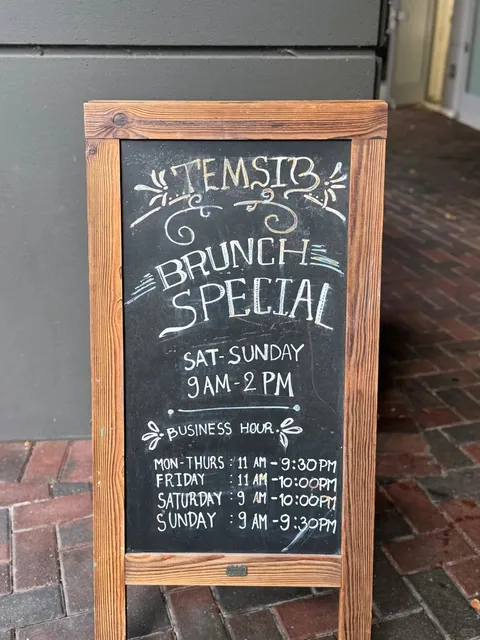 TEMSIB
BRUNCH
SPECIAL
SAT-SUNDAY
9AM-2 PM
BUSINESS HOUR
MON-THURS : 11 AM - 9:30PM
FRIDAY : 11 AM -10:00PM
SATURDAY : 9 AM -10:00PM
SUNDAY : 9 AM -9:30PM